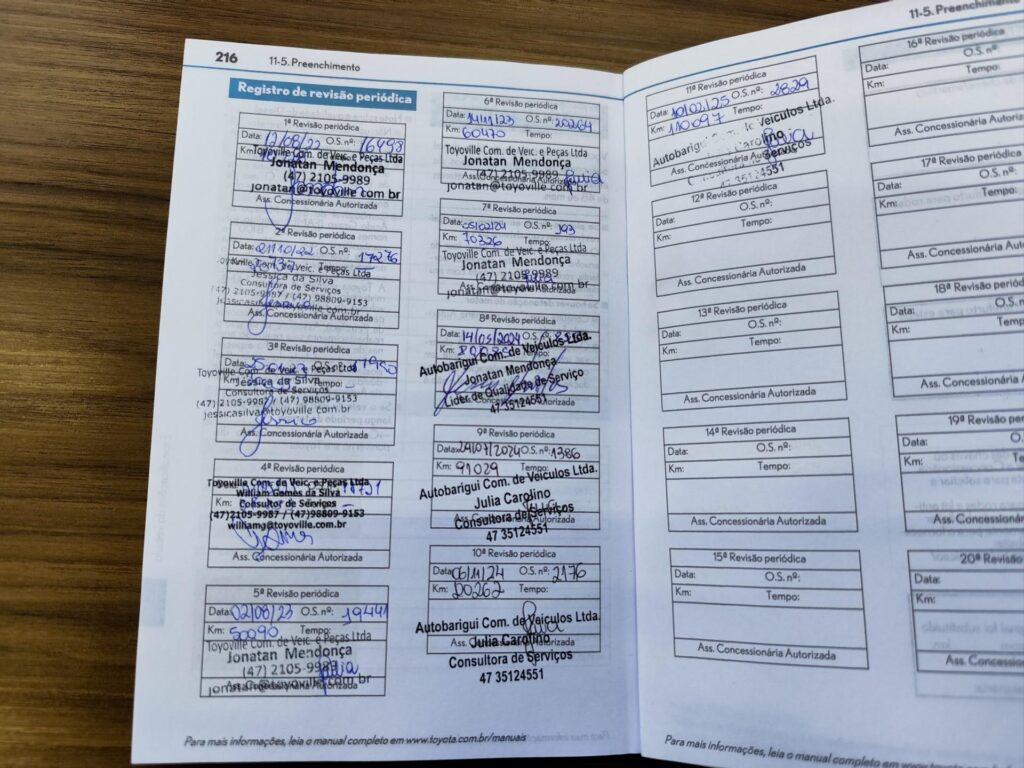 216
11-5. Preenchimento
Registro de revisão periódica
1ª Revisão periódica
Data: 12/08/22 O.S. nº: 16493
Km:
Toyoville Com. de Veic. e Peças Ltda
Jonatan Mendonça
(47) 2105-9989
jonatan@toyoville.com.br
Ass. Concessionária Autorizada
2ª Revisão periódica
Data: 21/10/22 O.S. nº: 17276
Km: Tempo:
Toyoville Com. de Veic. e Peças Ltda
Jessica da Silva
Consultora de Serviços
(47) 2105-9987 / (47) 98809-9153
Ass. Concessionária Autorizada
3ª Revisão periódica
Data: O.S. nº:
Toyoville Com. de Veic. e Peças Ltda
Km: Tempo: -
Jessica da Silva
Consultora de Serviços
(47) 2105-9987 / (47) 98809-9153
jessicasilva@toyoville.com.br
Ass. Concessionária Autorizada
4ª Revisão periódica
Toyoville Com. de Veic. e Peças Ltda
William Gomes da Silva
Km:
Consultor de Serviços
(47)2105-9987 / (47)98809-9153
williamg@toyoville.com.br
Ass. Concessionária Autorizada
5ª Revisão periódica
Data: 02/08/23 O.S. nº: 19441
Km: 50090 Tempo:
Toyoville Com. de Veic. e Peças Ltda
Jonatan Mendonça
(47) 2105-9989
jonatan@toyoville.com.br
Ass. Concessionária Autorizada
6ª Revisão periódica
Data: 14/11/23 O.S. nº: 20264
Km: 60470 Tempo:
Toyoville Com. de Veic. e Peças Ltda
Jonatan Mendonça
(47) 2105-9989
jonatan@toyoville.com.br
7ª Revisão periódica
Data: 05/02/24 O.S. nº: 193
Km: 70326 Tempo:
Toyoville Com. de Veic. e Peças Ltda
Jonatan Mendonça
(47) 2105-9989
jonatan@toyoville.com.br
Ass. Concessionária Autorizada
8ª Revisão periódica
Data: 14/05/2024 O.S. nº:
Km:
Autobarigui Com. de Veículos Ltda.
Jonatan Mendonça
Líder de Qualidade de Serviço
47 35124551
9ª Revisão periódica
Data: 24/07/2024 O.S. nº: 1386
Km: 91029 Tempo:
Autobarigui Com. de Veículos Ltda.
Julia Carolino
Consultora de Serviços
47 35124551
10ª Revisão periódica
Data: 06/11/24 O.S. nº: 2176
Km: Tempo:
Autobarigui Com. de Veículos Ltda.
Ass. Concessionária Autorizada
Julia Carolino
Consultora de Serviços
47 35124551
Para mais informações, leia o manual completo em www.toyota.com.br/manuais
11-5. Preenchimento
11ª Revisão periódica
Data: 10/02/25 O.S. nº: 2829
Km: 110097 Tempo:
Autobarigui Com. de Veículos Ltda.
Carolino
Serviços
Ass. Concessionária
47 35124551
12ª Revisão periódica
Data: O.S. nº:
Km: Tempo:
Ass. Concessionária Autorizada
13ª Revisão periódica
Data: O.S. nº:
Km: Tempo:
Ass. Concessionária Autorizada
14ª Revisão periódica
Data: O.S. nº:
Km: Tempo:
Ass. Concessionária Autorizada
15ª Revisão periódica
Data: O.S. nº:
Km: Tempo:
Ass. Concessionária Autorizada
16ª Revisão periódica
Data: O.S. nº:
Km: Tempo:
Ass. Concessionária Autorizada
17ª Revisão periódica
Data: O.S. nº:
Km: Tempo:
Ass. Concessionária
18ª Revisão periódica
Data: O.S. nº:
Km: Tempo:
Ass. Concessionária
19ª Revisão
Data: O.S.
Km:
Ass. Concessionária
20ª Revisão
Data:
Km:
Ass.
Para mais informações, leia o manual completo em www.toyota.com.br/manuais